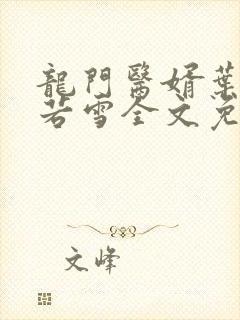 龍門醫婿葉
若雪全文免
文峰